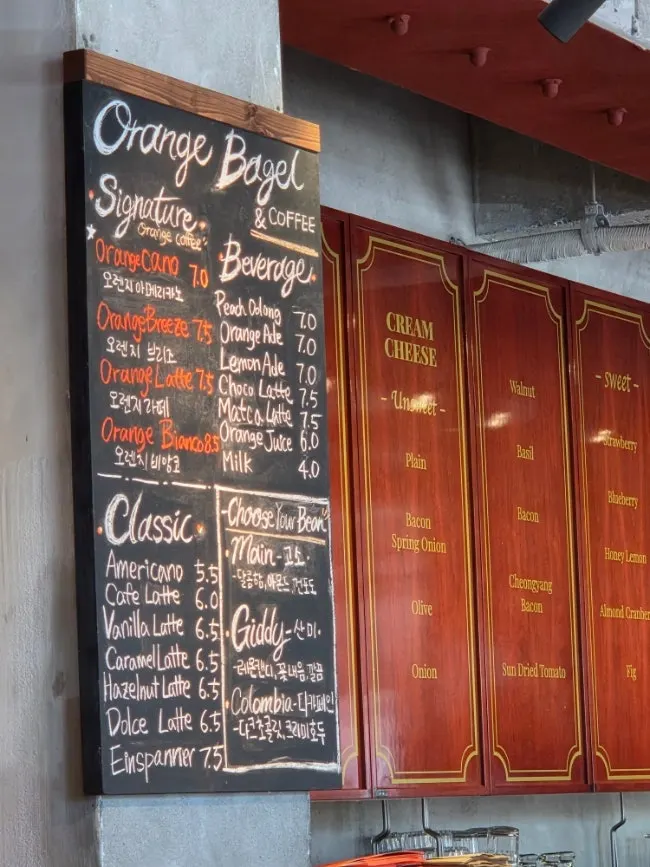 Orange Bagel
& COFFEE
Signature
Orange coffee
Orangecano 7.0
오렌지 아메리카노
Orange Breeze 7.5
오렌지 브리즈
Orange Latte 7.5
오렌지 라떼
Orange Bianco 8.5
오렌지 비앙코
Beverage
Peach Oolong 7.0
Orange Ade 7.0
Lemon Ade 7.0
Choco Latte 7.5
Matca Latte 7.5
Orange Juice 6.0
Milk 4.0
Classic
Americano 5.5
Cafe Latte 6.0
Vanilla Latte 6.5
Caramel Latte 6.5
Hazelnut Latte 6.5
Dolce Latte 6.5
Einspanner 7.5
Choose Your Bean
Main - 고소
- 달콤함, 아몬드, 건포도
Giddy - 산미
- 레몬캔디, 꽃내음, 깔끔
Colombia - 디카페인
- 다크초콜릿, 크리미호두
CREAM
CHEESE
- Unsweet -
Plain
Bacon
Spring Onion
Olive
Onion
Walnut
Basil
Bacon
Cheongyang
Bacon
Sun Dried Tomato
- sweet -
Strawberry
Blueberry
Honey Lemon
Almond Cranber
Fig